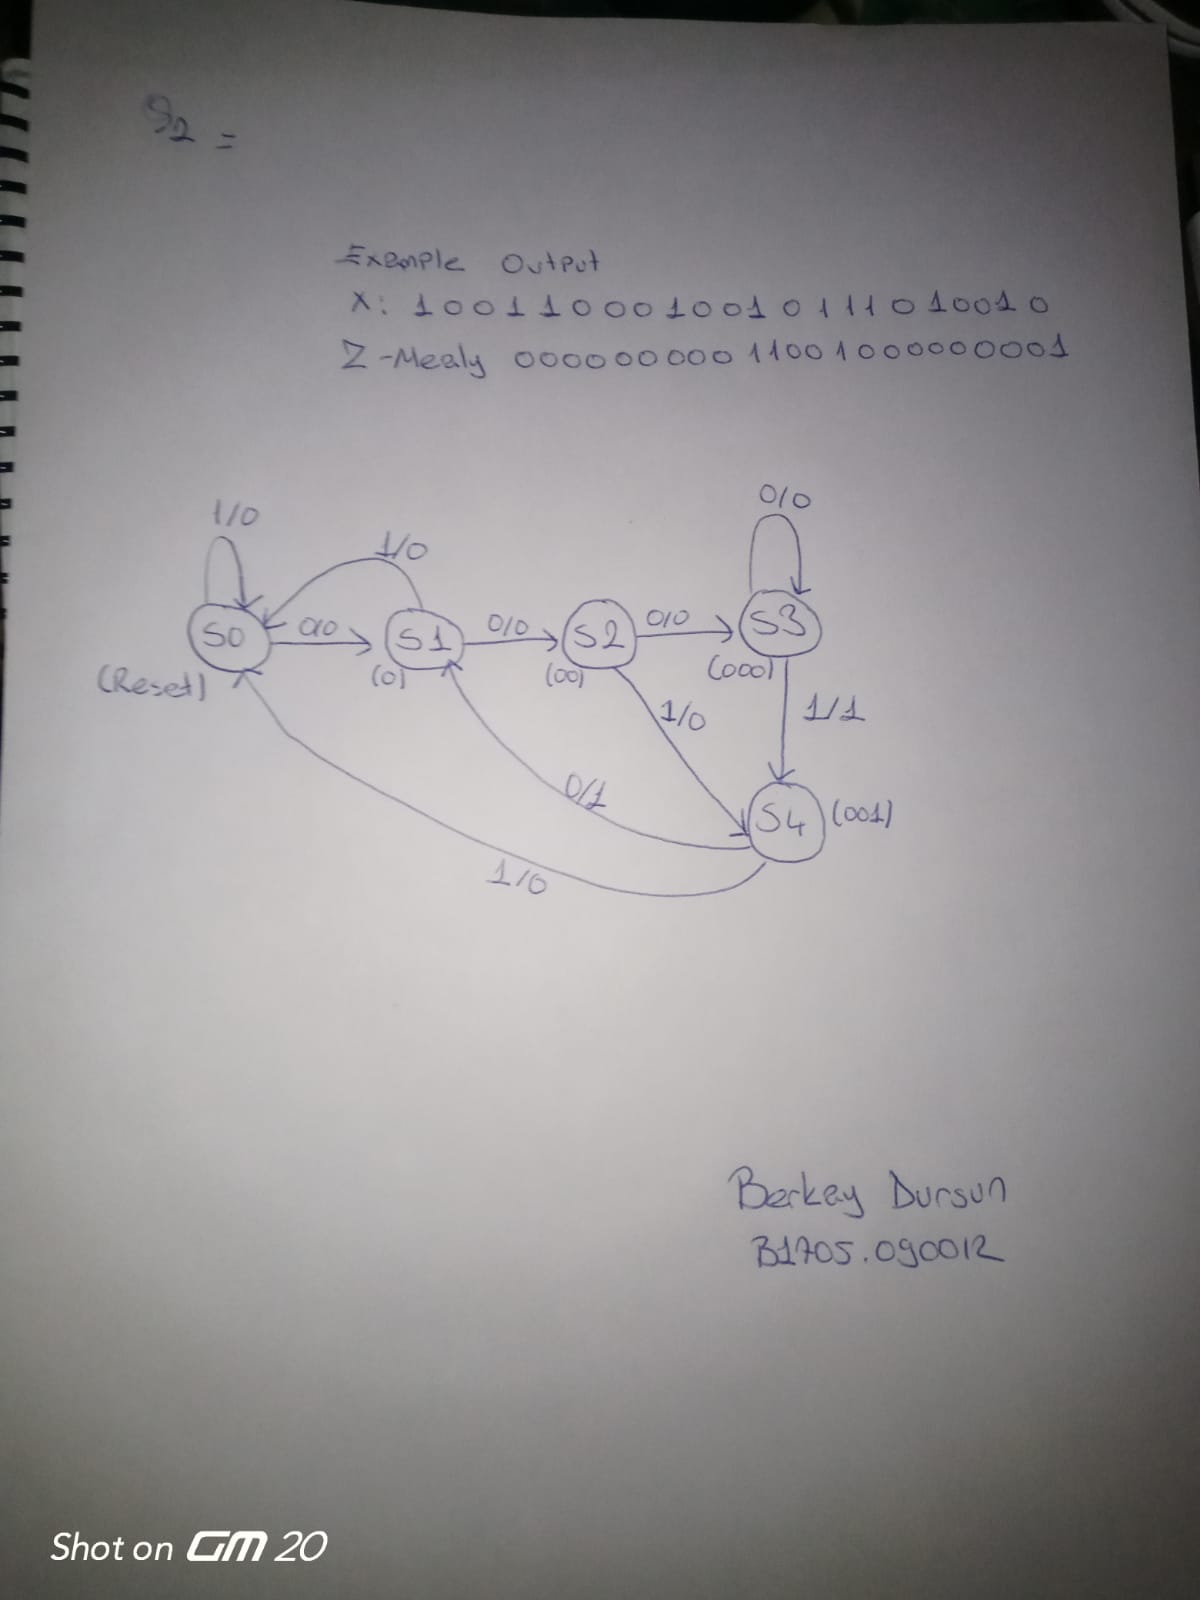 S2 =
Example Output
X: 10011000100101110 10010
Z-Mealy 0000000001100100000000 1
0/0
1/0
1/0
S0 0/0 S1 0/0 S2 0/0 S3
(Reset) (0) (00) (000)
1/0 1/1
0/1 S4 (001)
1/0
Berkay Dursun
B1705.090012
Shot on GM 20